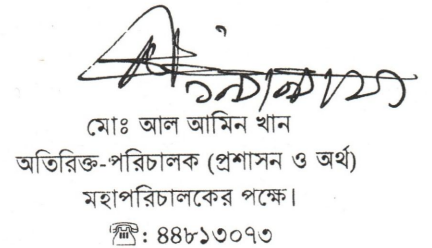 মোঃ আল আমিন খান
অতিরিক্ত-পরিচালক (প্রশাসন ও অর্থ)
মহাপরিচালকের পক্ষে।
☎: ৪৪৮১৩০৭৩